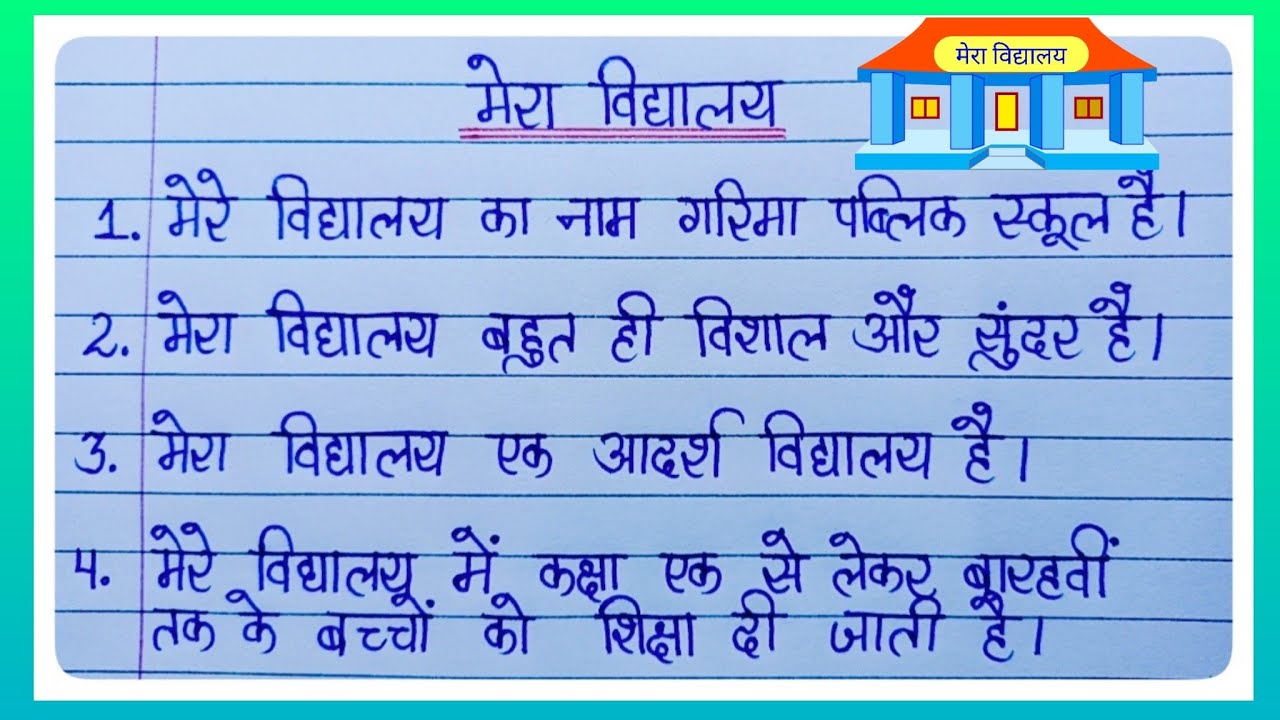 मेरा विद्यालय
मेरा विद्यालय
1. मेरे विद्यालय का नाम गरिमा पब्लिक स्कूल है।
2. मेरा विद्यालय बहुत ही विशाल और सुंदर है।
3. मेरा विद्यालय एक आदर्श विद्यालय है।
4. मेरे विद्यालय में कक्षा एक से लेकर बारहवीं
तक के बच्चों को शिक्षा दी जाती है।